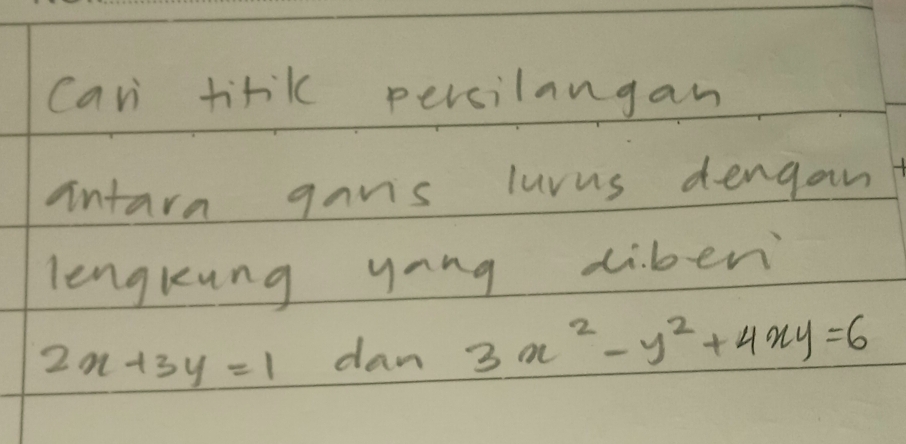 Cari titik persilangan
antara garis lurus dengan
lengkung yang diberi
2x+3y=1 dan 3x²-y²+4xy=6